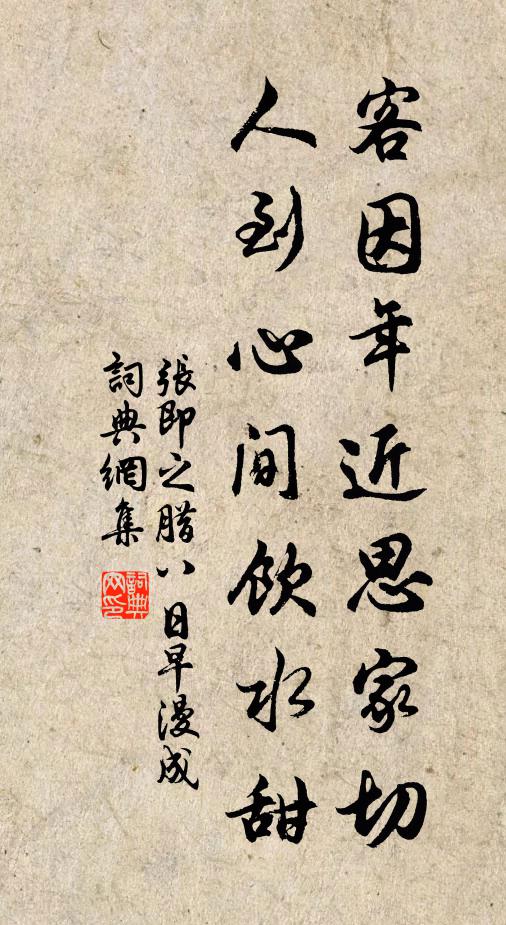 客因年近思家切
人到心閒飲水甜
張即之腊八日早漫成
詞典網集
詞典网印